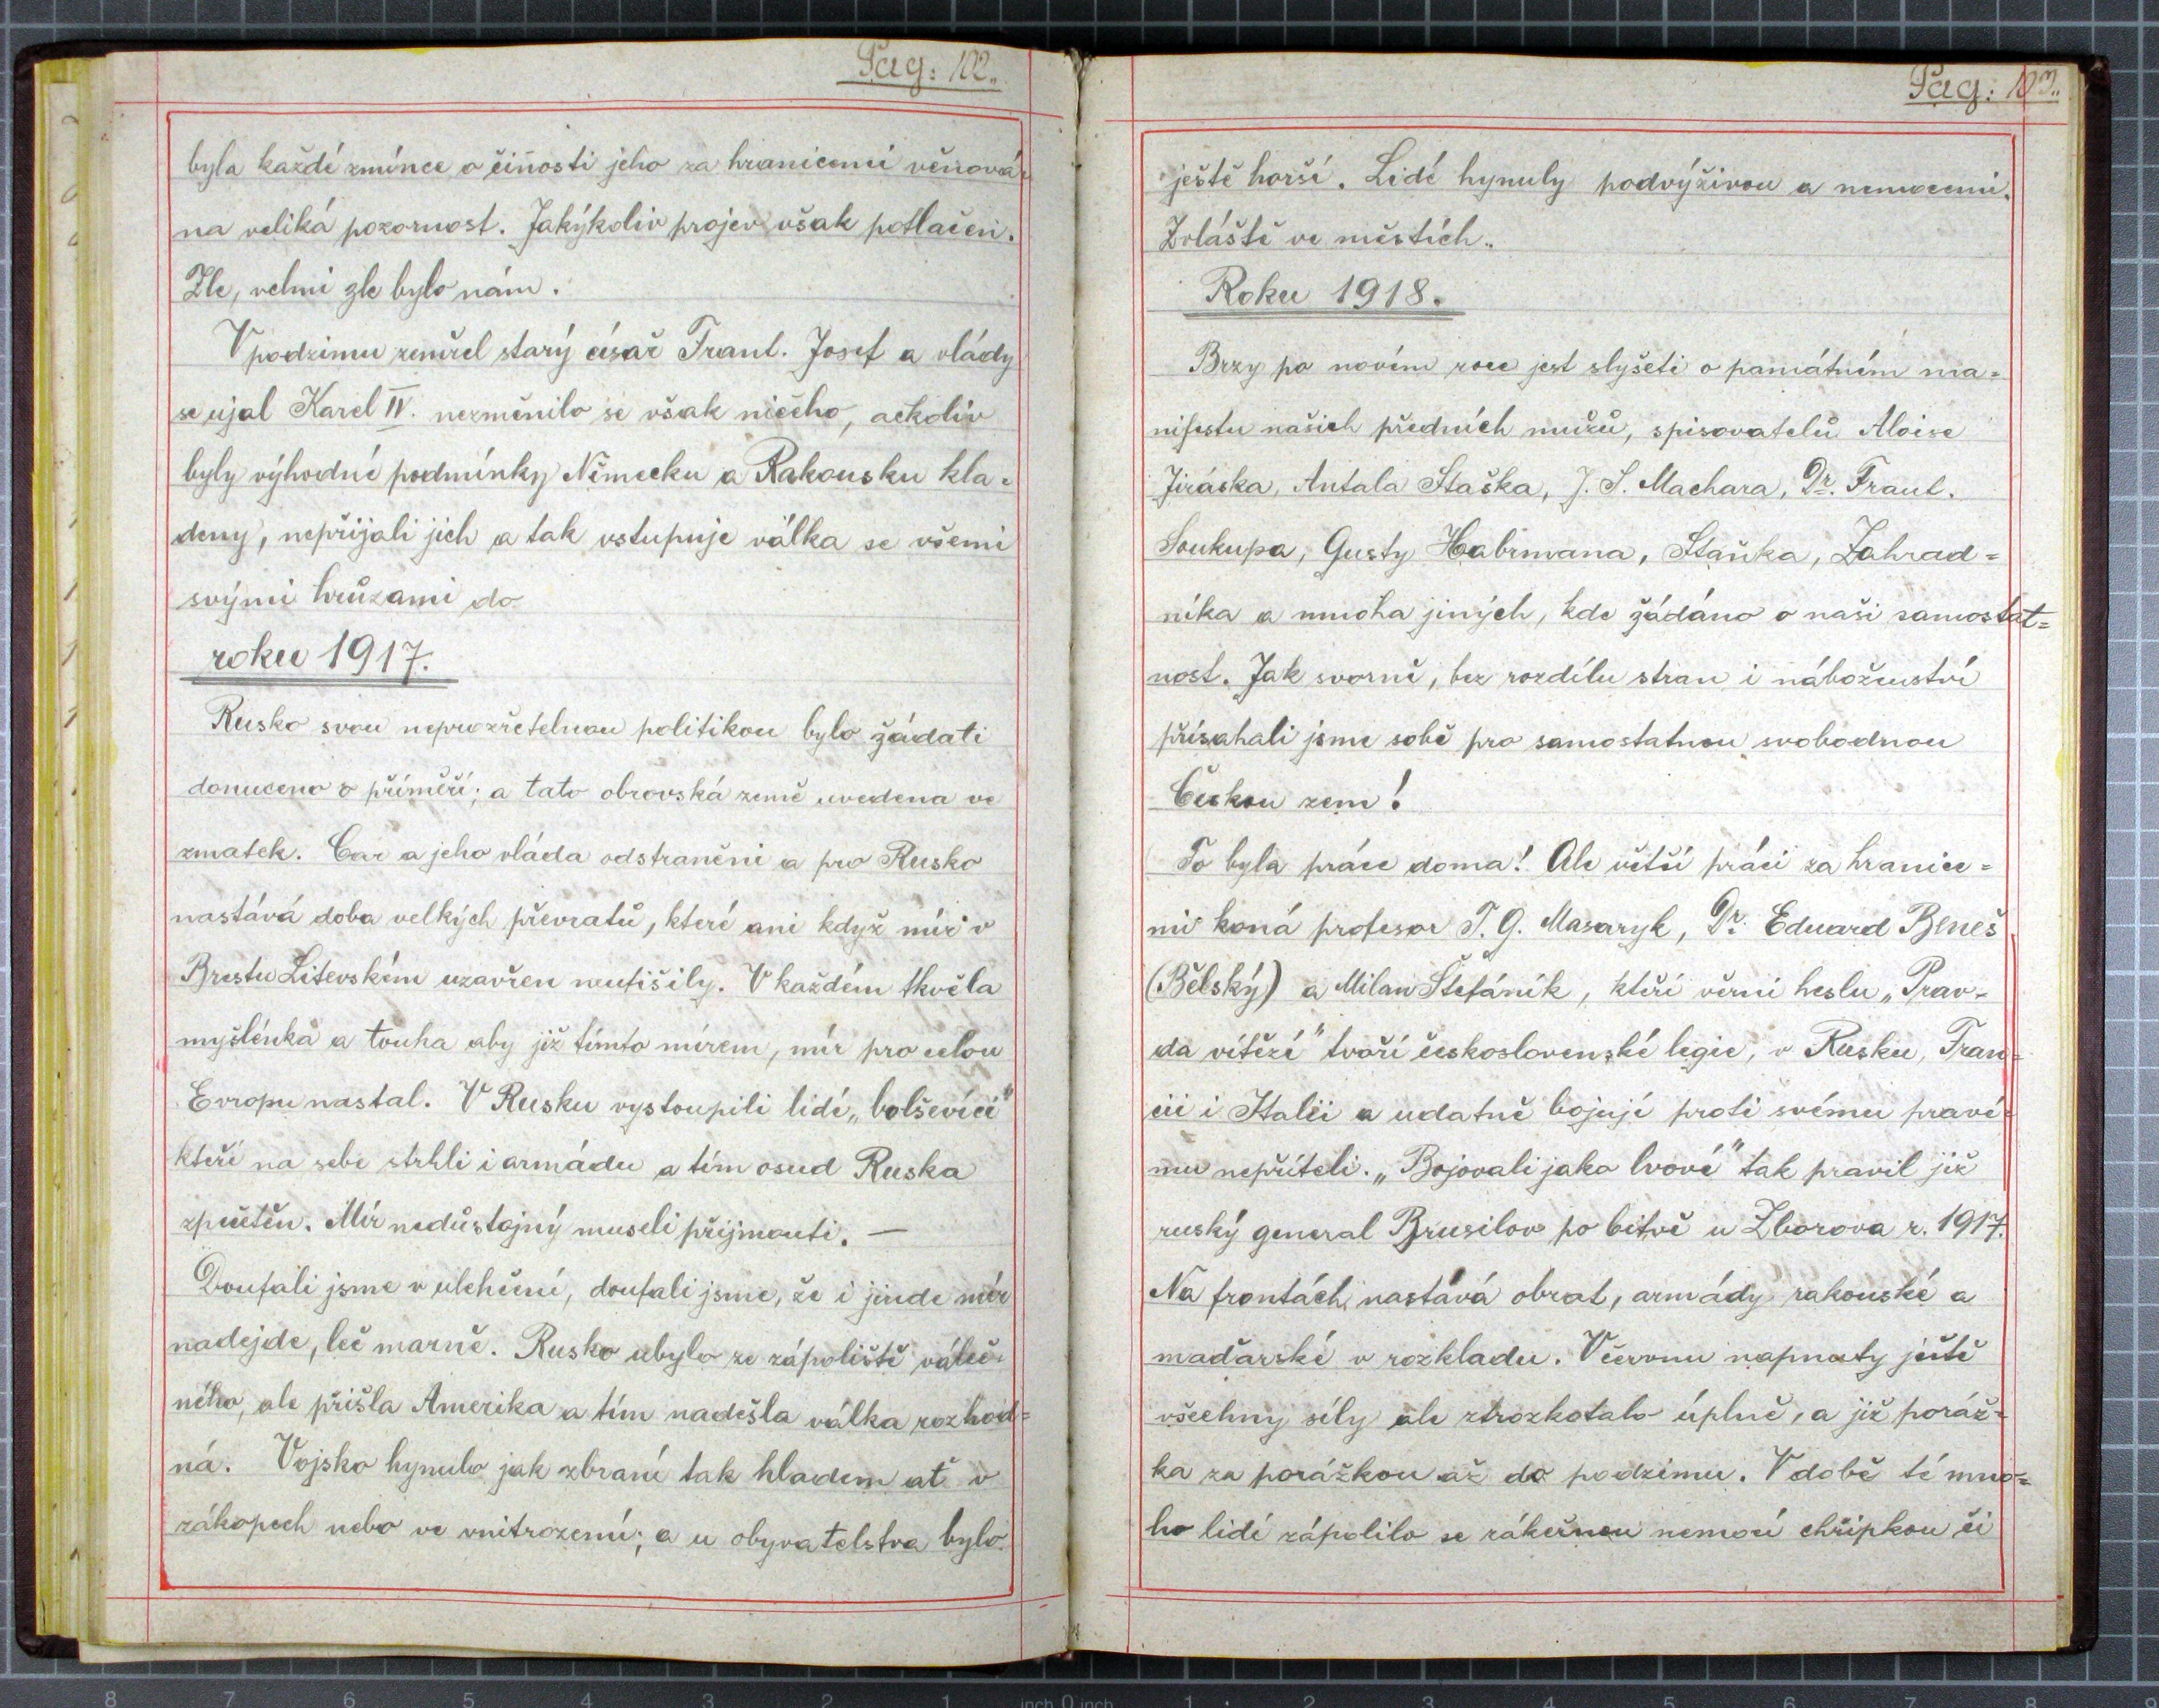 Pag: 102.
byla každé zmínce o čiňosti jeho za hranicemi věnová-
na veliká pozornost. Jakýkoliv projev však potlačen.
Zle, velmi zle bylo nám.
V podzimu zemřel starý císař Frant. Josef a vlády
se ujal Karel IV. nezměnilo se však ničeho, ačkoliv
byly výhodné podmínky Německu a Rakousku kla-
deny, nepřijali jich a tak vstupuje válka se všemi
svými hrůzami do
roku 1917.
Rusko svou neprozřetelnou politikou bylo žádati
donuceno o příměří; a tato obrovská země uvedena ve
zmatek. Car a jeho vláda odstraněni a pro Rusko
nastává doba velkých převratů, které ani když mír v
Brestu Litevském uzavřen neutišily. V každém tkvěla
myšlénka a touha aby již tímto mírem, mír pro celou
Evropu nastal. V Rusku vystoupili lidé „bolševíci"
kteří na sebe strhli i armádu a tím osud Ruska
zpečetěn. Mír nedůstojný museli přijmouti. —
Doufali jsme v ulehčení, doufali jsme, že i jinde mír
nadejde, leč marně. Rusko ubylo ze zápoliště váleč-
ného, ale přišla Amerika a tím nadešla válka rozhod=
ná. Vojsko hynulo jak zbraní tak hladem ať v
zákopech nebo ve vnitrozemí; a u obyvatelstva bylo
Pag: 103.
ještě horší. Lidé hynuly podvýživou a nemocemi.
Zvláště ve městích.
Roku 1918.
Brzy po novém roce jest slyšeti o památném ma=
nifestu našich předních mužů, spisovatelů Aloise
Jiráska, Antala Staška, J. S. Machara, Dr. Frant.
Soukupa, Gusty Habrmana, Staňka, Zahrad=
níka a mnoha jiných, kde žádáno o naši samostat=
nost. Jak svorně, bez rozdílu stran i náboženství
přísahali jsme sobě pro samostatnou svobodnou
Českou zem!
To byla práce doma! Ale větší práci za hranice=
mi koná profesor T. G. Masaryk, Dr. Eduard Beneš
(Bělský) a Milan Štefánik, kteří věrni heslu „Prav-
da vítězí" tvoří československé legie, v Rusku, Fran=
cii i Italii a udatně bojují proti svému pravé=
mu nepříteli. „Bojovali jako lvové" tak pravil již
ruský general Brusilov po bitvě u Zborova r. 1917.
Na frontách nastává obrat, armády rakouské a
maďarské v rozkladu. V červnu napnuty ještě
všechny síly ale ztrozkotalo úplně, a již poráž=
ka za porážkou až do podzimu. V době té mno=
ho lidí zápolilo se zákeřnou nemocí chřipkou či